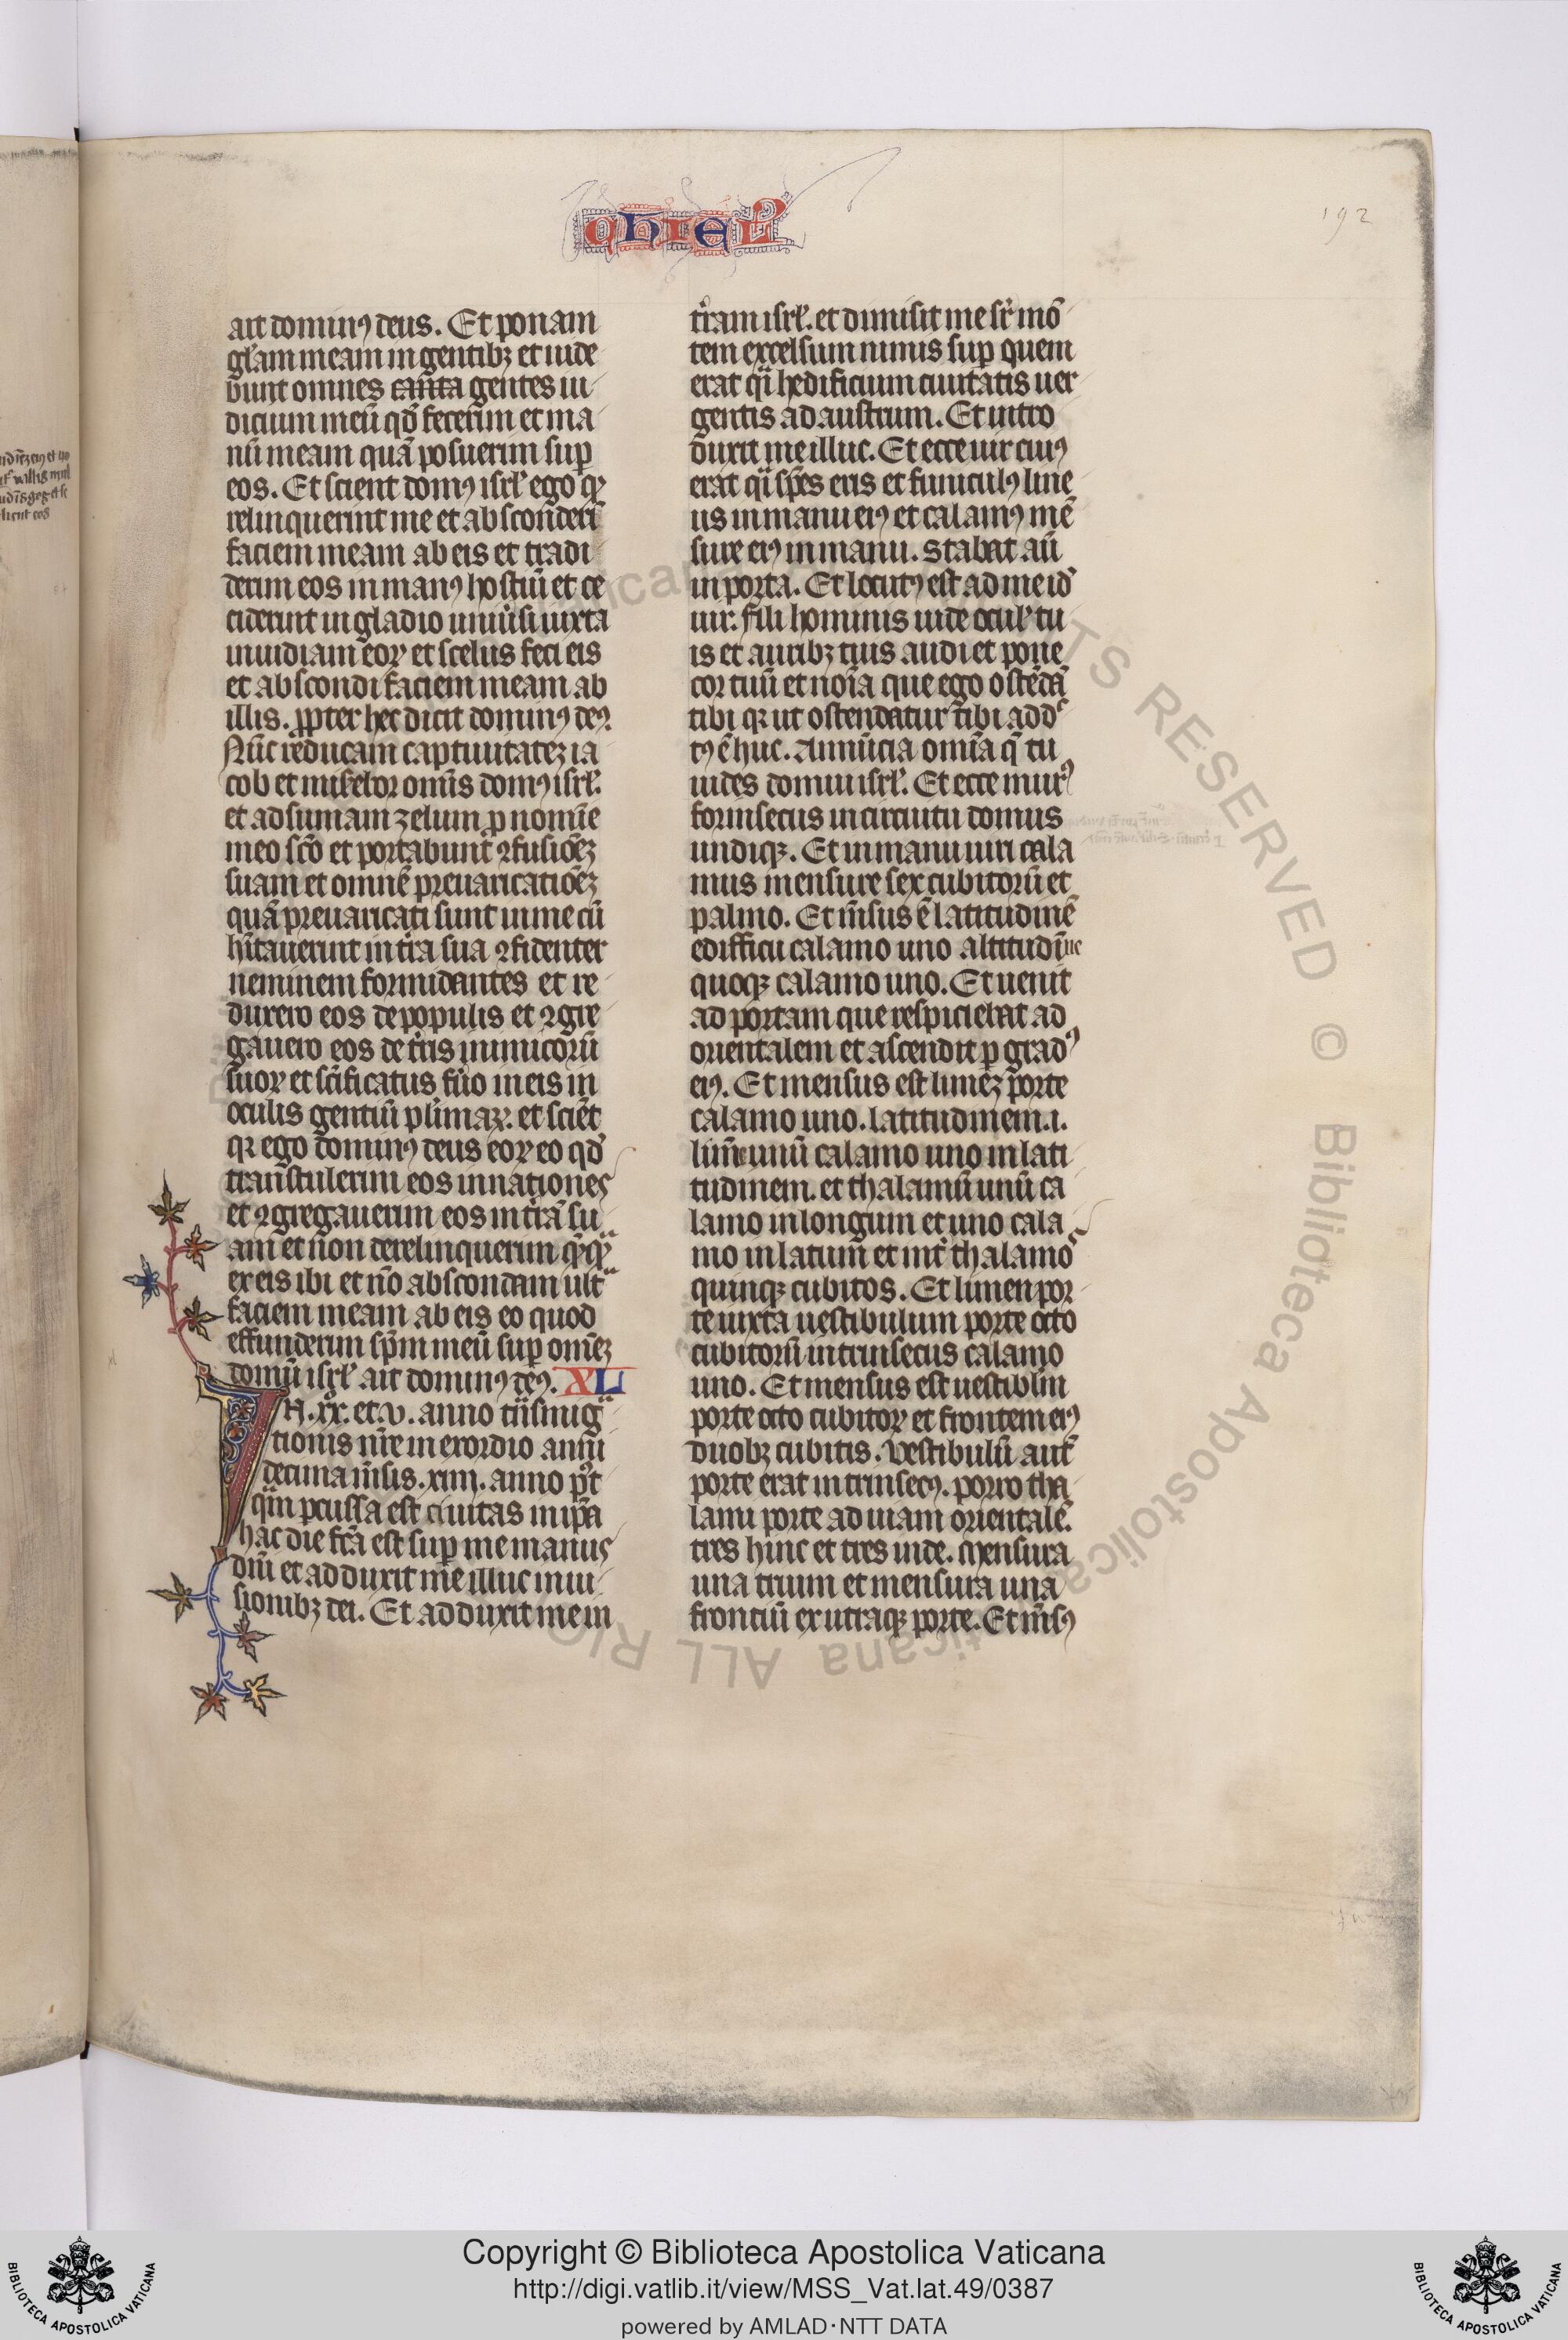 chiel
192
ait dominꝰ deus. Et ponam
gl̄am meam in gentibꝫ et uide
bunt omnes cuncta gentes iu
dicium meū qd̄ fecerim et ma
nū meam quā posuerim sup̄
eos. Et scient domꝰ isrl̄ ego qꝛ
relinquerint me et absconderī
faciem meam ab eis et tradi
derim eos in manꝰ hostiū et ce
ciderint in gladio uniuˀsi iuxta
inuidiam eoꝝ et scelus feci eis
et abscondi faciem meam ab
illis. ꝓpter hec dicit dominꝰ deꝰ.
Nūc reducam captiuitateꝫ ia
cob et miserebor omīs domꝰ isrl̄.
et adsumam zelum p nomīe
meo sc̄o et portabunt ꝯfusiōeꝫ
suam et omnē preuaricatiōeꝫ
quā preuaricati sunt in me cū
hītauerint in tˀra sua ꝯfidenter
neminem formidantes et re
duxero eos de populis et ꝯgre
gauero eos de tˀris inimicorū
suoꝝ et sc̄ificatus fuˀo in eis in
oculis gentiū plˀimaꝝ. et sciēt
qꝛ ego dominꝰ deus eoꝝ eo qd̄
transtulerim eos in nationes
et ꝯgregauerim eos in tˀrā su
am et non derelinquerim qˀqˀ
ex eis ibi et nō abscondam ult̄
faciem meam ab eis eo quod
effunderim sp̄m meū sup̄ omēꝫ
domū isrl̄ ait dominꝰ deꝰ. XL
IN .xx. et .v. anno tnˀsmig
tionis nr̄e in exordio anni
decima mēsis .xiiii. anno pˀt
qˀm pcussa est ciuitas in ip̄a
hac die fc̄a est sup̄ me manus
dn̄i et adduxit me illuc in ui
sionibꝫ dei. Et adduxit me in
tˀram isrl̄. et dimisit me sr̄ mō
tem excelsum nimis sup̄ quem
erat qˀi hedificium ciuitatis uer
gentis ad austrum. Et intro
duxit me illuc. Et ecce uir cuiꝰ
erat qˀi sp̄es eris et funiculꝰ line
us in manu eiꝰ et calamꝰ mē
sure eiꝰ in manu. stabat aū
in porta. Et locutꝰ est ad me id̄
uir. fili hominis uide ocul̄ tu
is et auribꝫ tuis audi et pone
cor tuū et noīa que ego ostēdā
tibi qꝛ ut ostendatur tibi addˀ
tꝰ ē huc. Annūcia omīa q̄ tu
uides domui isrl̄. Et ecce murꝰ
forinsecus in circuitu domus
undiqꝫ. Et in manu uiri cala
mus mensure sex cubitorū et
palmo. Et mˀsus ē latitudinē
edifficii calamo uno altitudīne
quoqꝫ calamo uno. Et uenit
ad portam que respiciebat ad
orientalem et ascendit p gradꝰ
eiꝰ. Et mensus est limēꝫ porte
calamo uno. latitudinem .i.
limē unū calamo uno in lati
tudinem. et thalamū unū ca
lamo in longum et uno cala
mo in latum et intˀ thalamoˢ
quinqꝫ cubitos. Et limen por
te iuxta uestibulum porte octo
cubitorū intrinsecus calamo
uno. Et mensus est uestiblm̄
porte octo cubitoꝝ et frontem eiꝰ
duobꝫ cubitis. Vestibulū aut̄
porte erat intrinsecꝰ. porro tha
lami porte ad uiam orientalē.
tres hinc et tres inde. Mensura
una trium et mensura una
frontiū ex utraqꝫ porte. Et mˀsꝰ
ALL RIGHTS RESERVED © Biblioteca Apostolica Vaticana
BIBLIOTECA APOSTOLICA VATICANA
Copyright © Biblioteca Apostolica Vaticana
http://digi.vatlib.it/view/MSS_Vat.lat.49/0387
powered by AMLAD·NTT DATA
BIBLIOTECA APOSTOLICA VATICANA